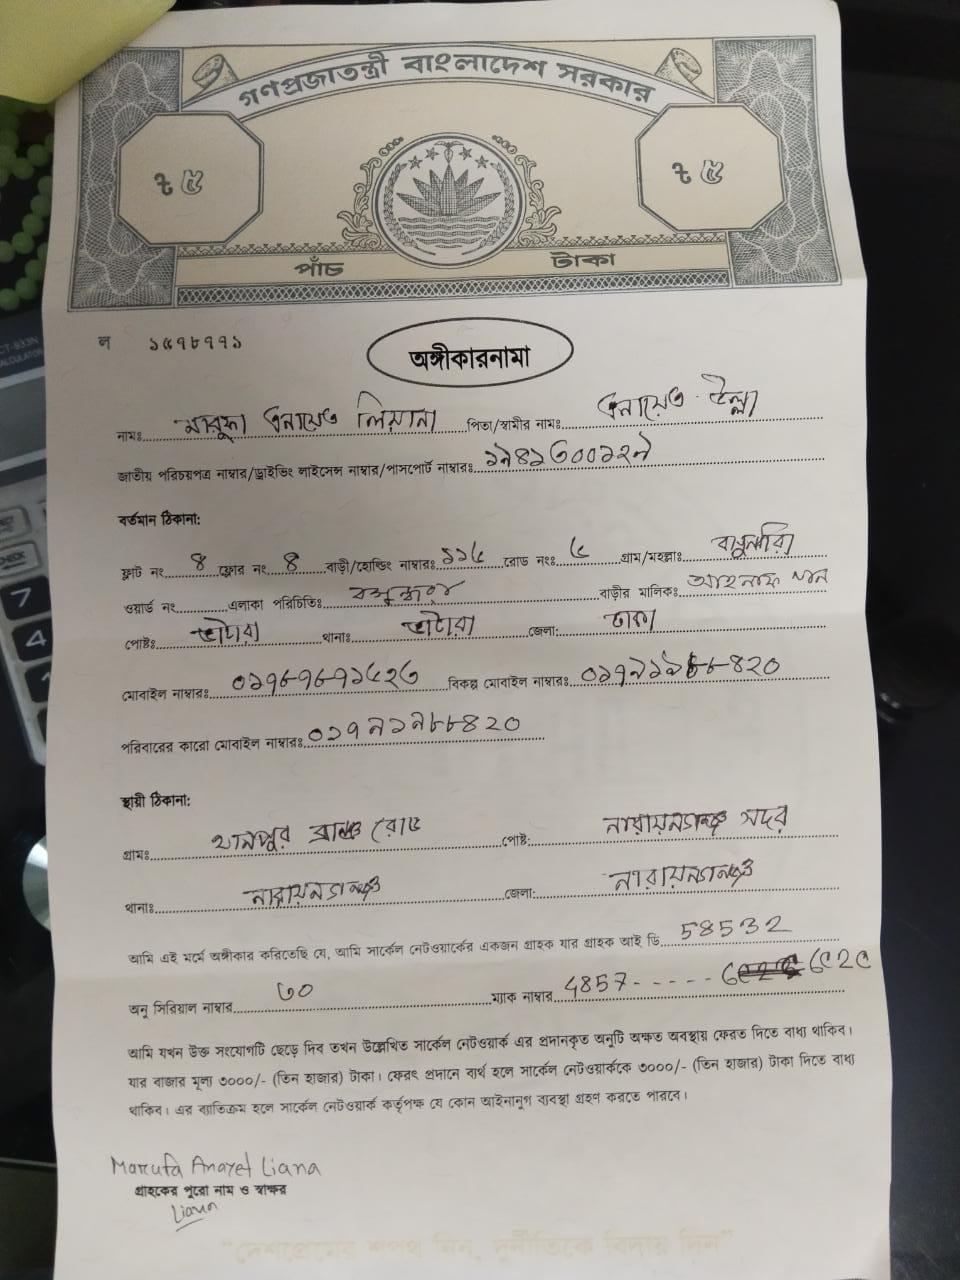 গণপ্রজাতন্ত্রী বাংলাদেশ সরকার
৳ ৫ ৳ ৫
পাঁচ টাকা
ল ১৫৭৮৭৭১
অঙ্গীকারনামা
নামঃ মারুফা এনায়েত লিয়ানা পিতা/স্বামীর নামঃ এনায়েত উল্লা
জাতীয় পরিচয়পত্র নাম্বার/ড্রাইভিং লাইসেন্স নাম্বার/পাসপোর্ট নাম্বারঃ ১৯৪১৩০০১২৯
বর্তমান ঠিকানা:
ফ্লাট নং ৪ ফ্লোর নং ৪ বাড়ী/হোল্ডিং নাম্বারঃ ১১৫ রোড নংঃ ৫ গ্রাম/মহল্লাঃ
ওয়ার্ড নং এলাকা পরিচিতিঃ বসুন্ধরা বাড়ীর মালিকঃ
পোষ্টঃ ভাটারা থানাঃ ভাটারা জেলা: ঢাকা
মোবাইল নাম্বারঃ ০১৭৮৭৮৭১৫২৩ বিকল্প মোবাইল নাম্বারঃ
পরিবারের কারো মোবাইল নাম্বারঃ ০১৭৯১৯৮৮৪২০
স্থায়ী ঠিকানা:
গ্রামঃ খানপুর ব্রাঞ্চ রোড পোষ্ট: নারায়নগঞ্জ সদর
থানাঃ নারায়নগঞ্জ জেলা: নারায়নগঞ্জ
আমি এই মর্মে অঙ্গীকার করিতেছি যে, আমি সার্কেল নেটওয়ার্কের একজন গ্রাহক যার গ্রাহক আই ডি 58532
অনু সিরিয়াল নাম্বার ৩০ ম্যাক নাম্বার 4857-----
আমি যখন উক্ত সংযোগটি ছেড়ে দিব তখন উল্লেখিত সার্কেল নেটওয়ার্ক এর প্রদানকৃত অনুটি অক্ষত অবস্থায় ফেরত দিতে বাধ্য থাকিব।
যার বাজার মূল্য ৩০০০/- (তিন হাজার) টাকা। ফেরৎ প্রদানে ব্যর্থ হলে সার্কেল নেটওয়ার্ককে ৩০০০/- (তিন হাজার) টাকা দিতে বাধ্য
থাকিব। এর ব্যতিক্রম হলে সার্কেল নেটওয়ার্ক কর্তৃপক্ষ যে কোন আইনানুগ ব্যবস্থা গ্রহণ করতে পারবে।
Marufa Anayet Liana
গ্রাহকের পুরো নাম ও স্বাক্ষর
Liana
"দেশপ্রেমের শপথ নিন, দুর্নীতিকে বিদায় দিন"